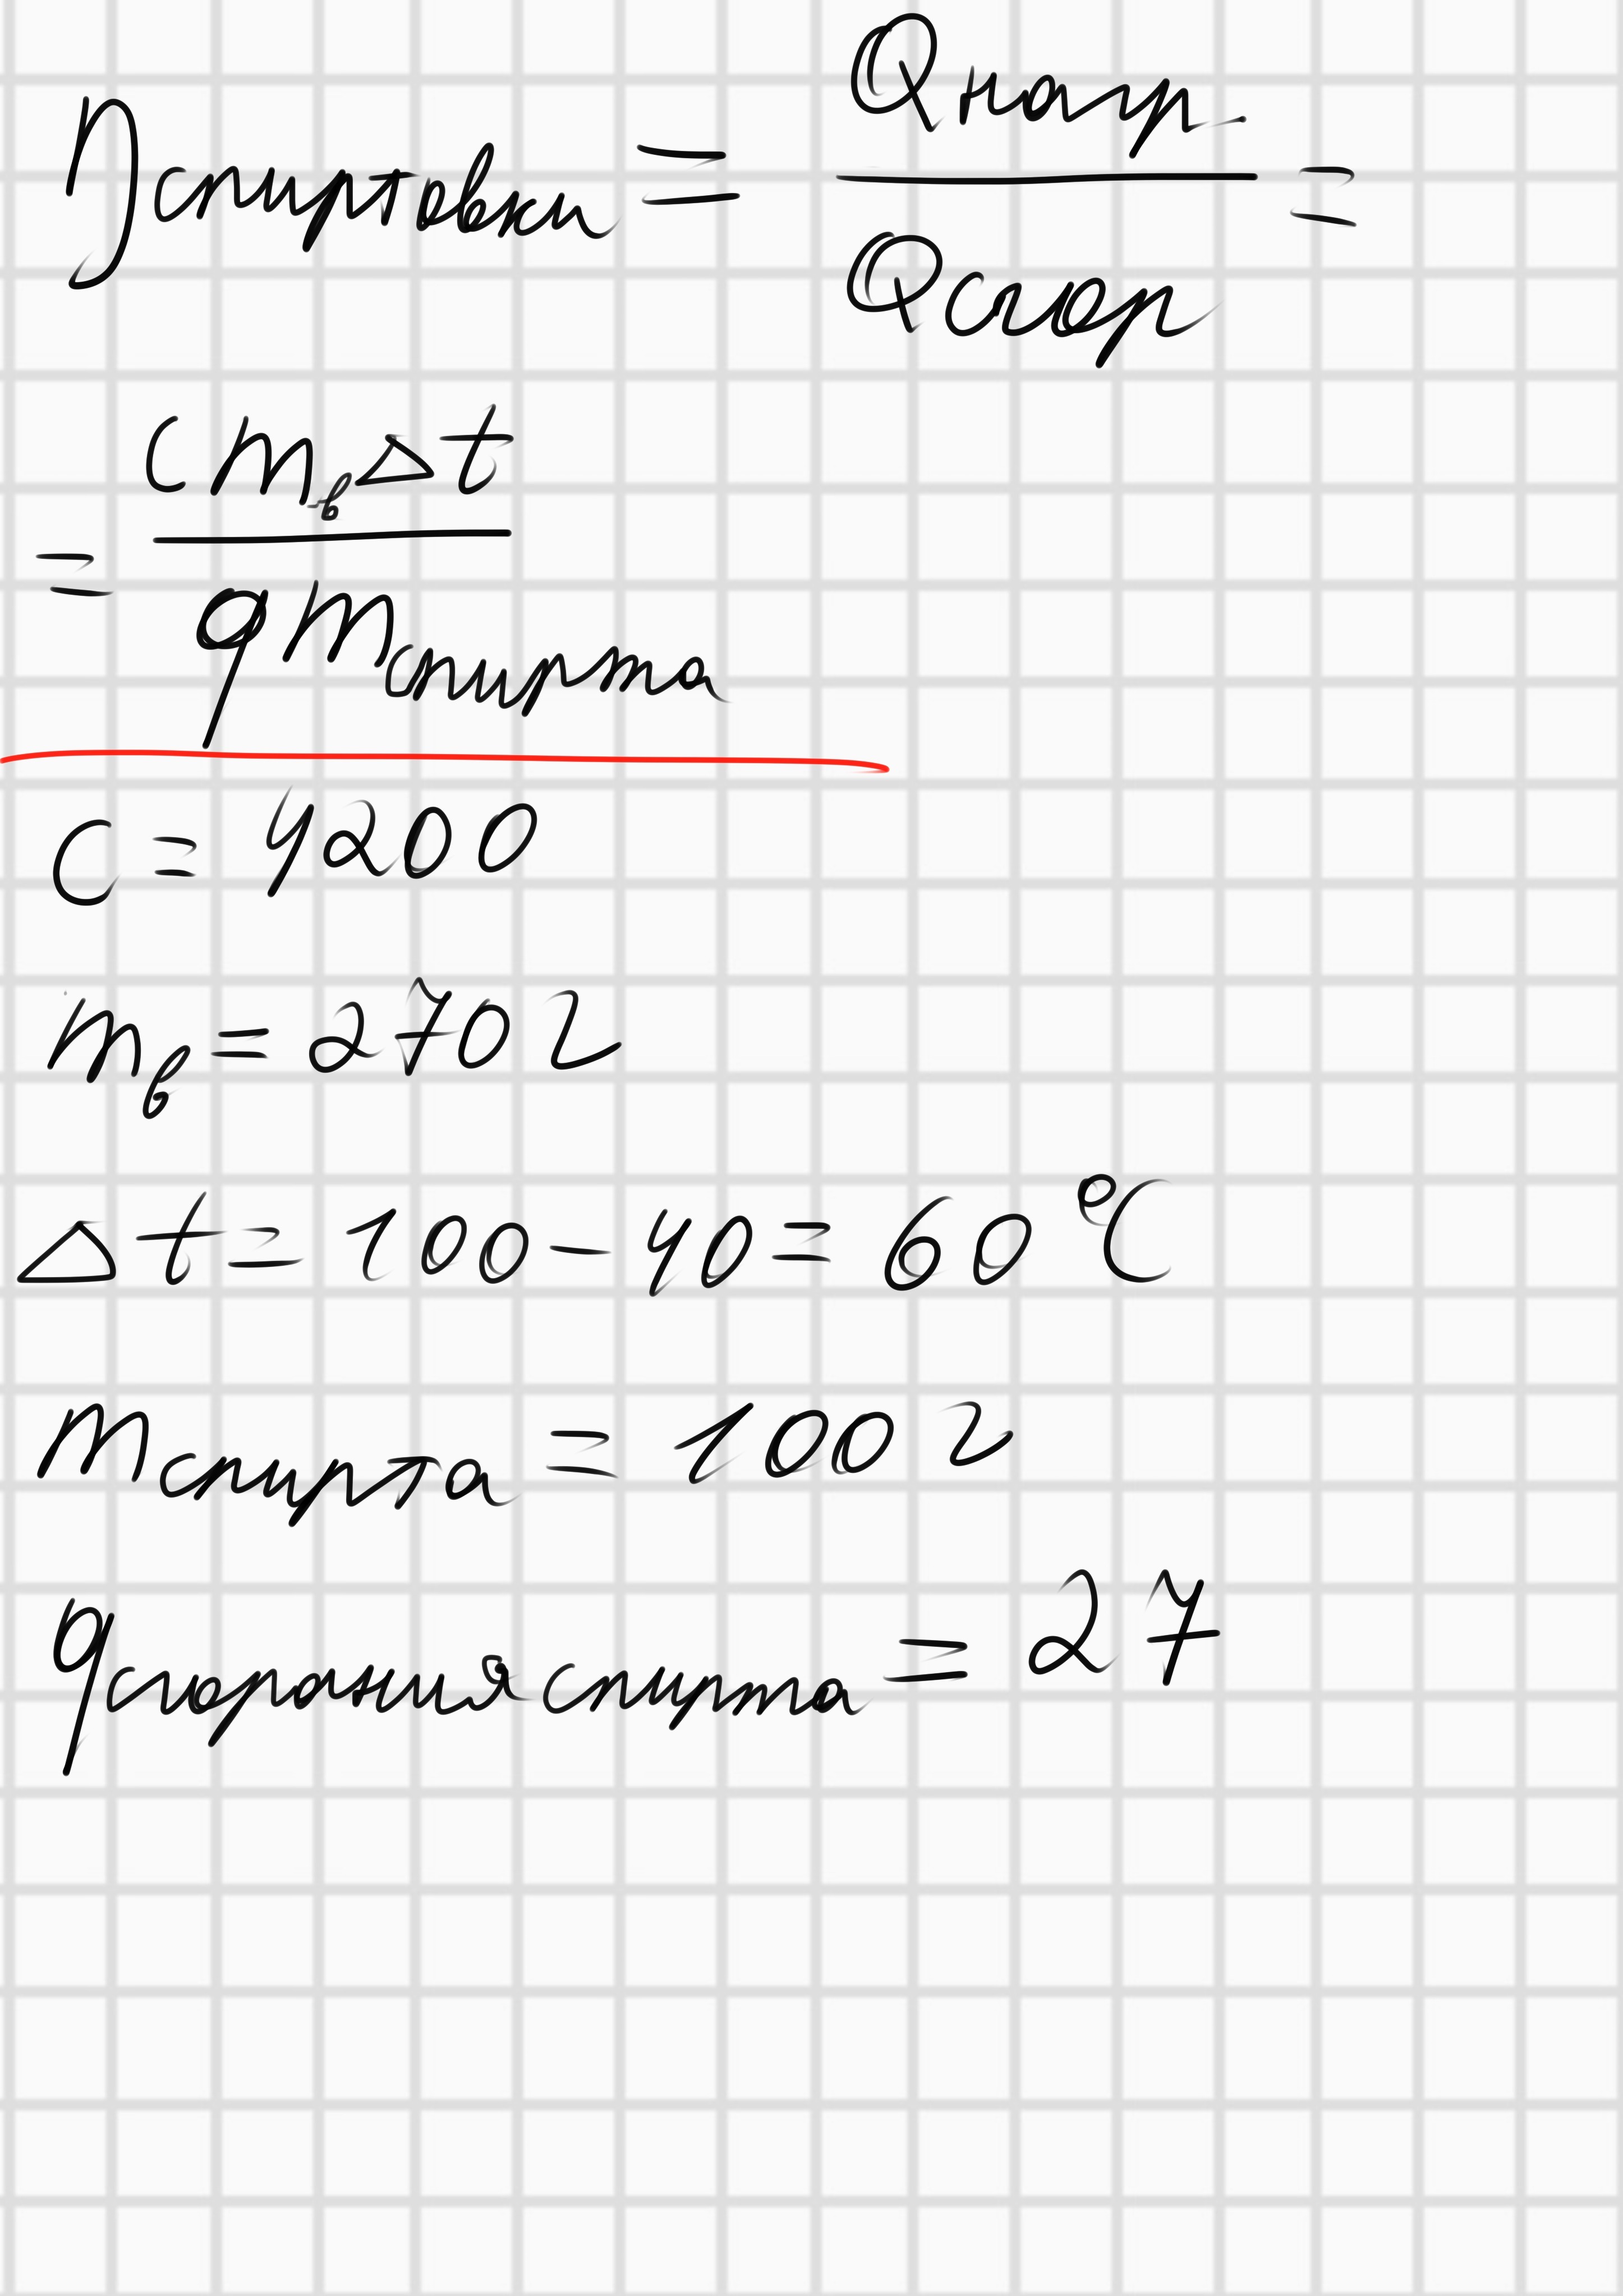 η спиртовки = Qнагр. / Qсгор =
= c m в Δt / q m спирта
c = 4200
m в = 270 г
Δt = 100 - 40 = 60 °C
m спирта = 100 г
q сгорания спирта = 27